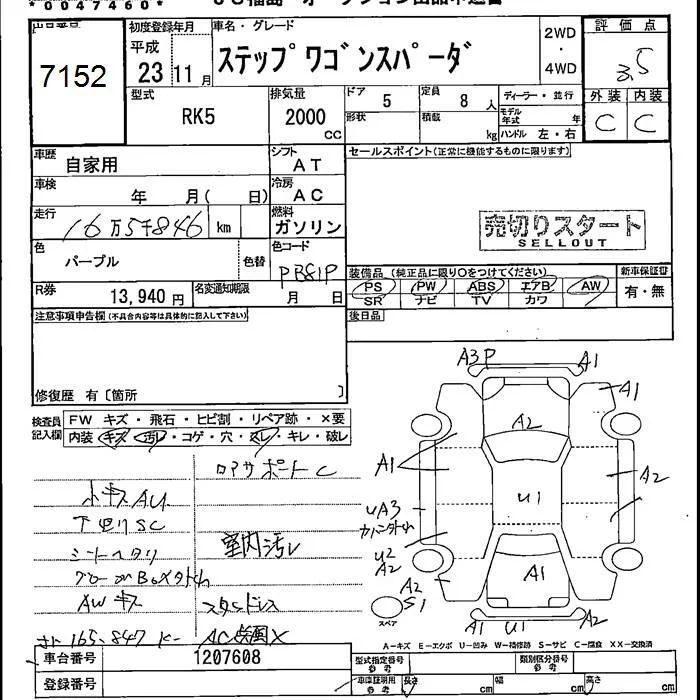 *0047460*
7152
初度登録年月
平成
23 11月
車名・グレード
ステップワゴンスパーダ
2WD
・
4WD
評価点
3.5
外装 内装
C C
型式
RK5
排気量
2000
CC
ドア 5
形状
定員 8人
積載 kg
ディーラー・並行
モデル年式 年
ハンドル 左・右
車歴
自家用
シフト
AT
セールスポイント(正常に機能するものに限ります)
車検
年 月( 日)
冷房
AC
走行
16万5千846 km
燃料
ガソリン
売切りスタート
SELLOUT
色
パープル
色替
色コード
PB81P
装備品(純正品に限り○をつけてください)
PS PW ABS エアB AW
SR ナビ TV カワ
新車保証書
有・無
R券
13,940円
名変通知期限
月 日
後日品
注意事項申告欄(不具合内容等は具体的に記入して下さい)
修復歴 有〔箇所 〕
検査員記入欄
FW キズ・飛石・ヒビ割・リペア跡・×要
内装 キズ・汚れ・コゲ・穴・スレ・キレ・破レ
ロアサポートC
小キズAU
下廻りSC
シートヘタリ
室内汚レ
AWキズ
スタッドレス
165,847
A3 P
A1
A1
A2
A1
A2
U1
UA3
U2
A2
A1
A2
S1
スペア
A1 U1 A2
A-キズ E-エクボ U-凹み W-補修跡 S-サビ C-腐食 XX-交換済
車台番号
1207608
型式指定番号
参考
類別区分番号
参考
登録番号
車庫証明用
参考
長さ cm 幅 cm 高さ cm